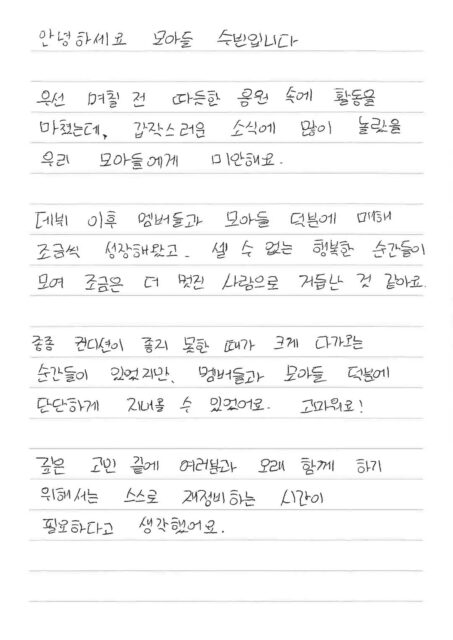 안녕하세요 모아들 수빈입니다
우선 며칠 전 따듯한 응원 속에 활동을
마쳤는데, 갑작스러운 소식에 많이 놀랐을
우리 모아들에게 미안해요.
데뷔 이후 멤버들과 모아들 덕분에 매해
조금씩 성장해왔고, 셀 수 없는 행복한 순간들이
모여 조금은 더 멋진 사람으로 거듭난 것 같아요.
종종 컨디션이 좋지 못한 때가 크게 다가오는
순간들이 있었지만, 멤버들과 모아들 덕분에
단단하게 지내올 수 있었어요. 고마워요!
깊은 고민 끝에 여러분과 오래 함께 하기
위해서는 스스로 재정비하는 시간이
필요하다고 생각했어요.